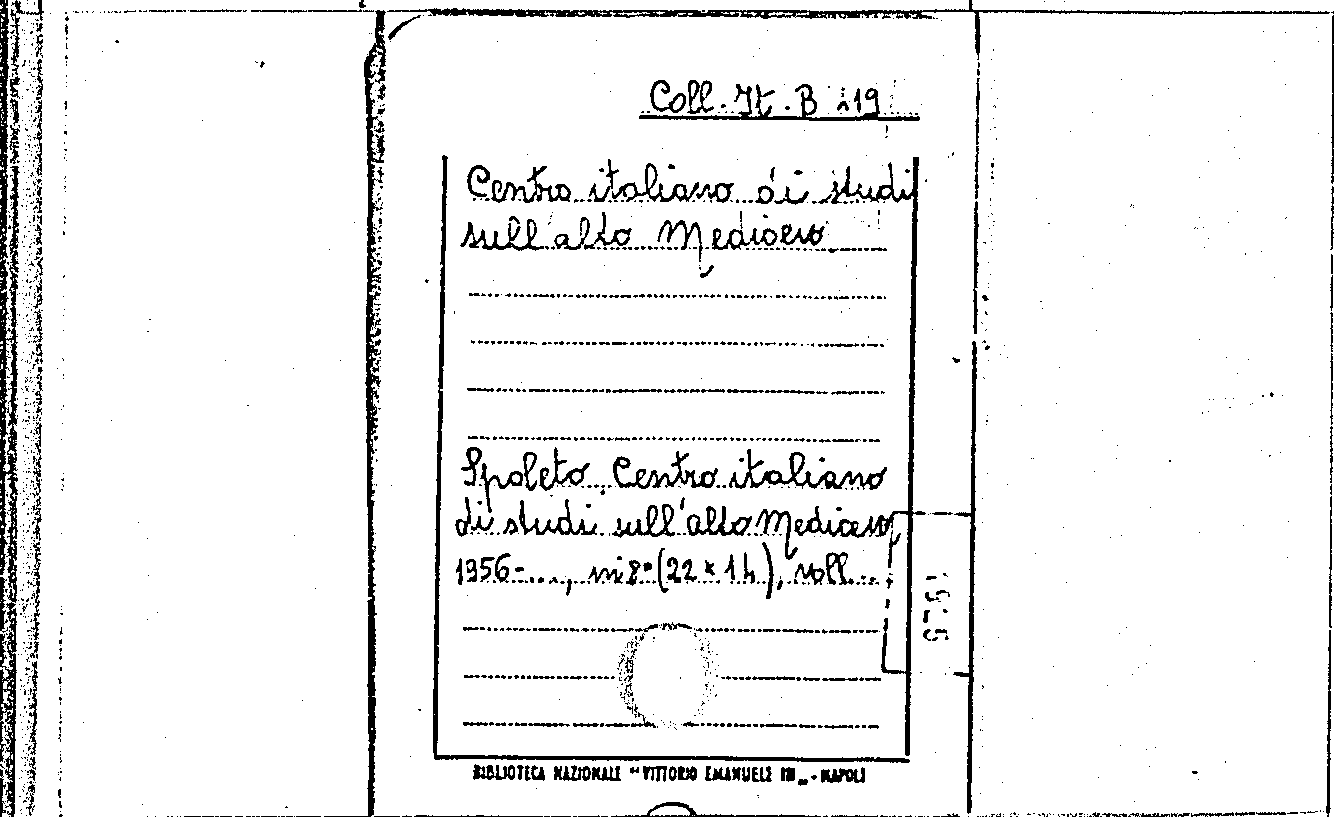 Coll. It. B 119
Centro italiano di studi
sull'alto Medioevo
Spoleto, Centro italiano
di studi sull'alto Medioevo,
1956-..., in 8° (22 x 14), voll...
BIBLIOTECA NAZIONALE "VITTORIO EMANUELE III" - NAPOLI